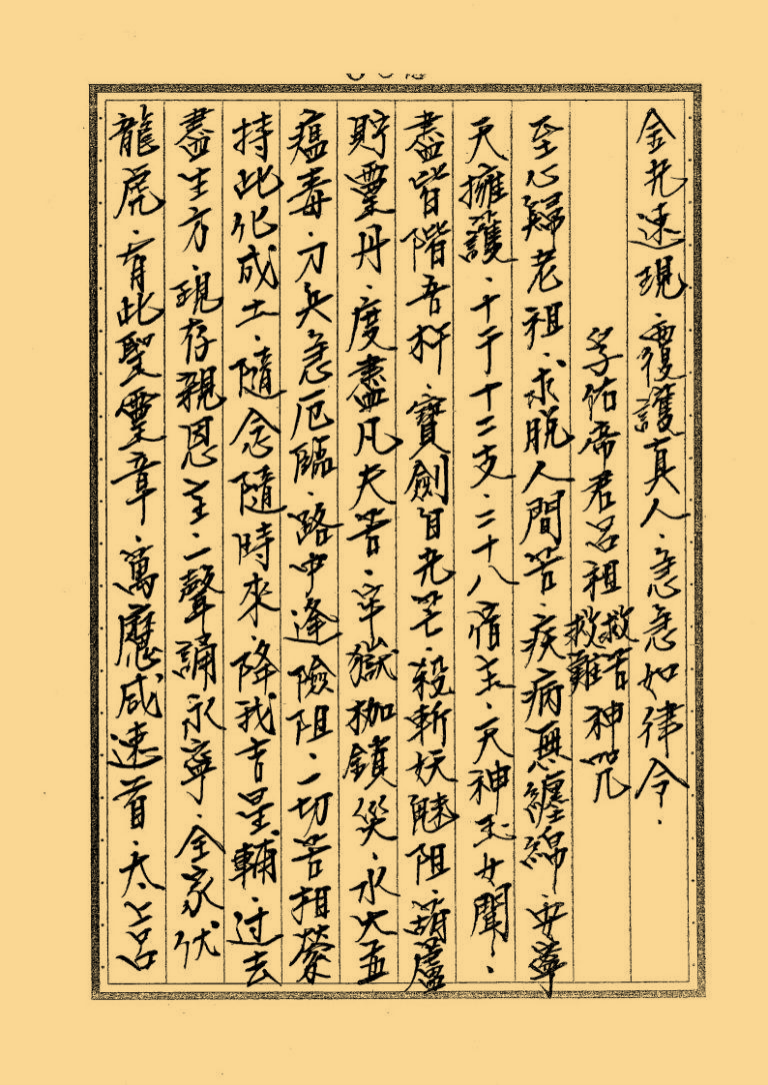 金光速現．覆護真人．急急如律令．
孚佑帝君呂祖救苦救難神咒
至心歸老祖．求脫人間苦．疾病無纏綿．安寧
天擁護．十干十二支．二十八宿主．天神玉女聞、
盡皆階吾拜．寶劍自光芒．殺斬妖魅阻．葫蘆
貯靈丹．度盡凡夫苦．牢獄枷鎖災．水火五
瘟毒．刀兵急厄臨．路中逢險阻．一切苦相縈
持此化成土．隨念隨時來．降我吉星輔．过去
盡生方．現存親恩主．一聲誦永寧．全家伏
龍虎．有此聖靈章．萬應咸速首．太上呂